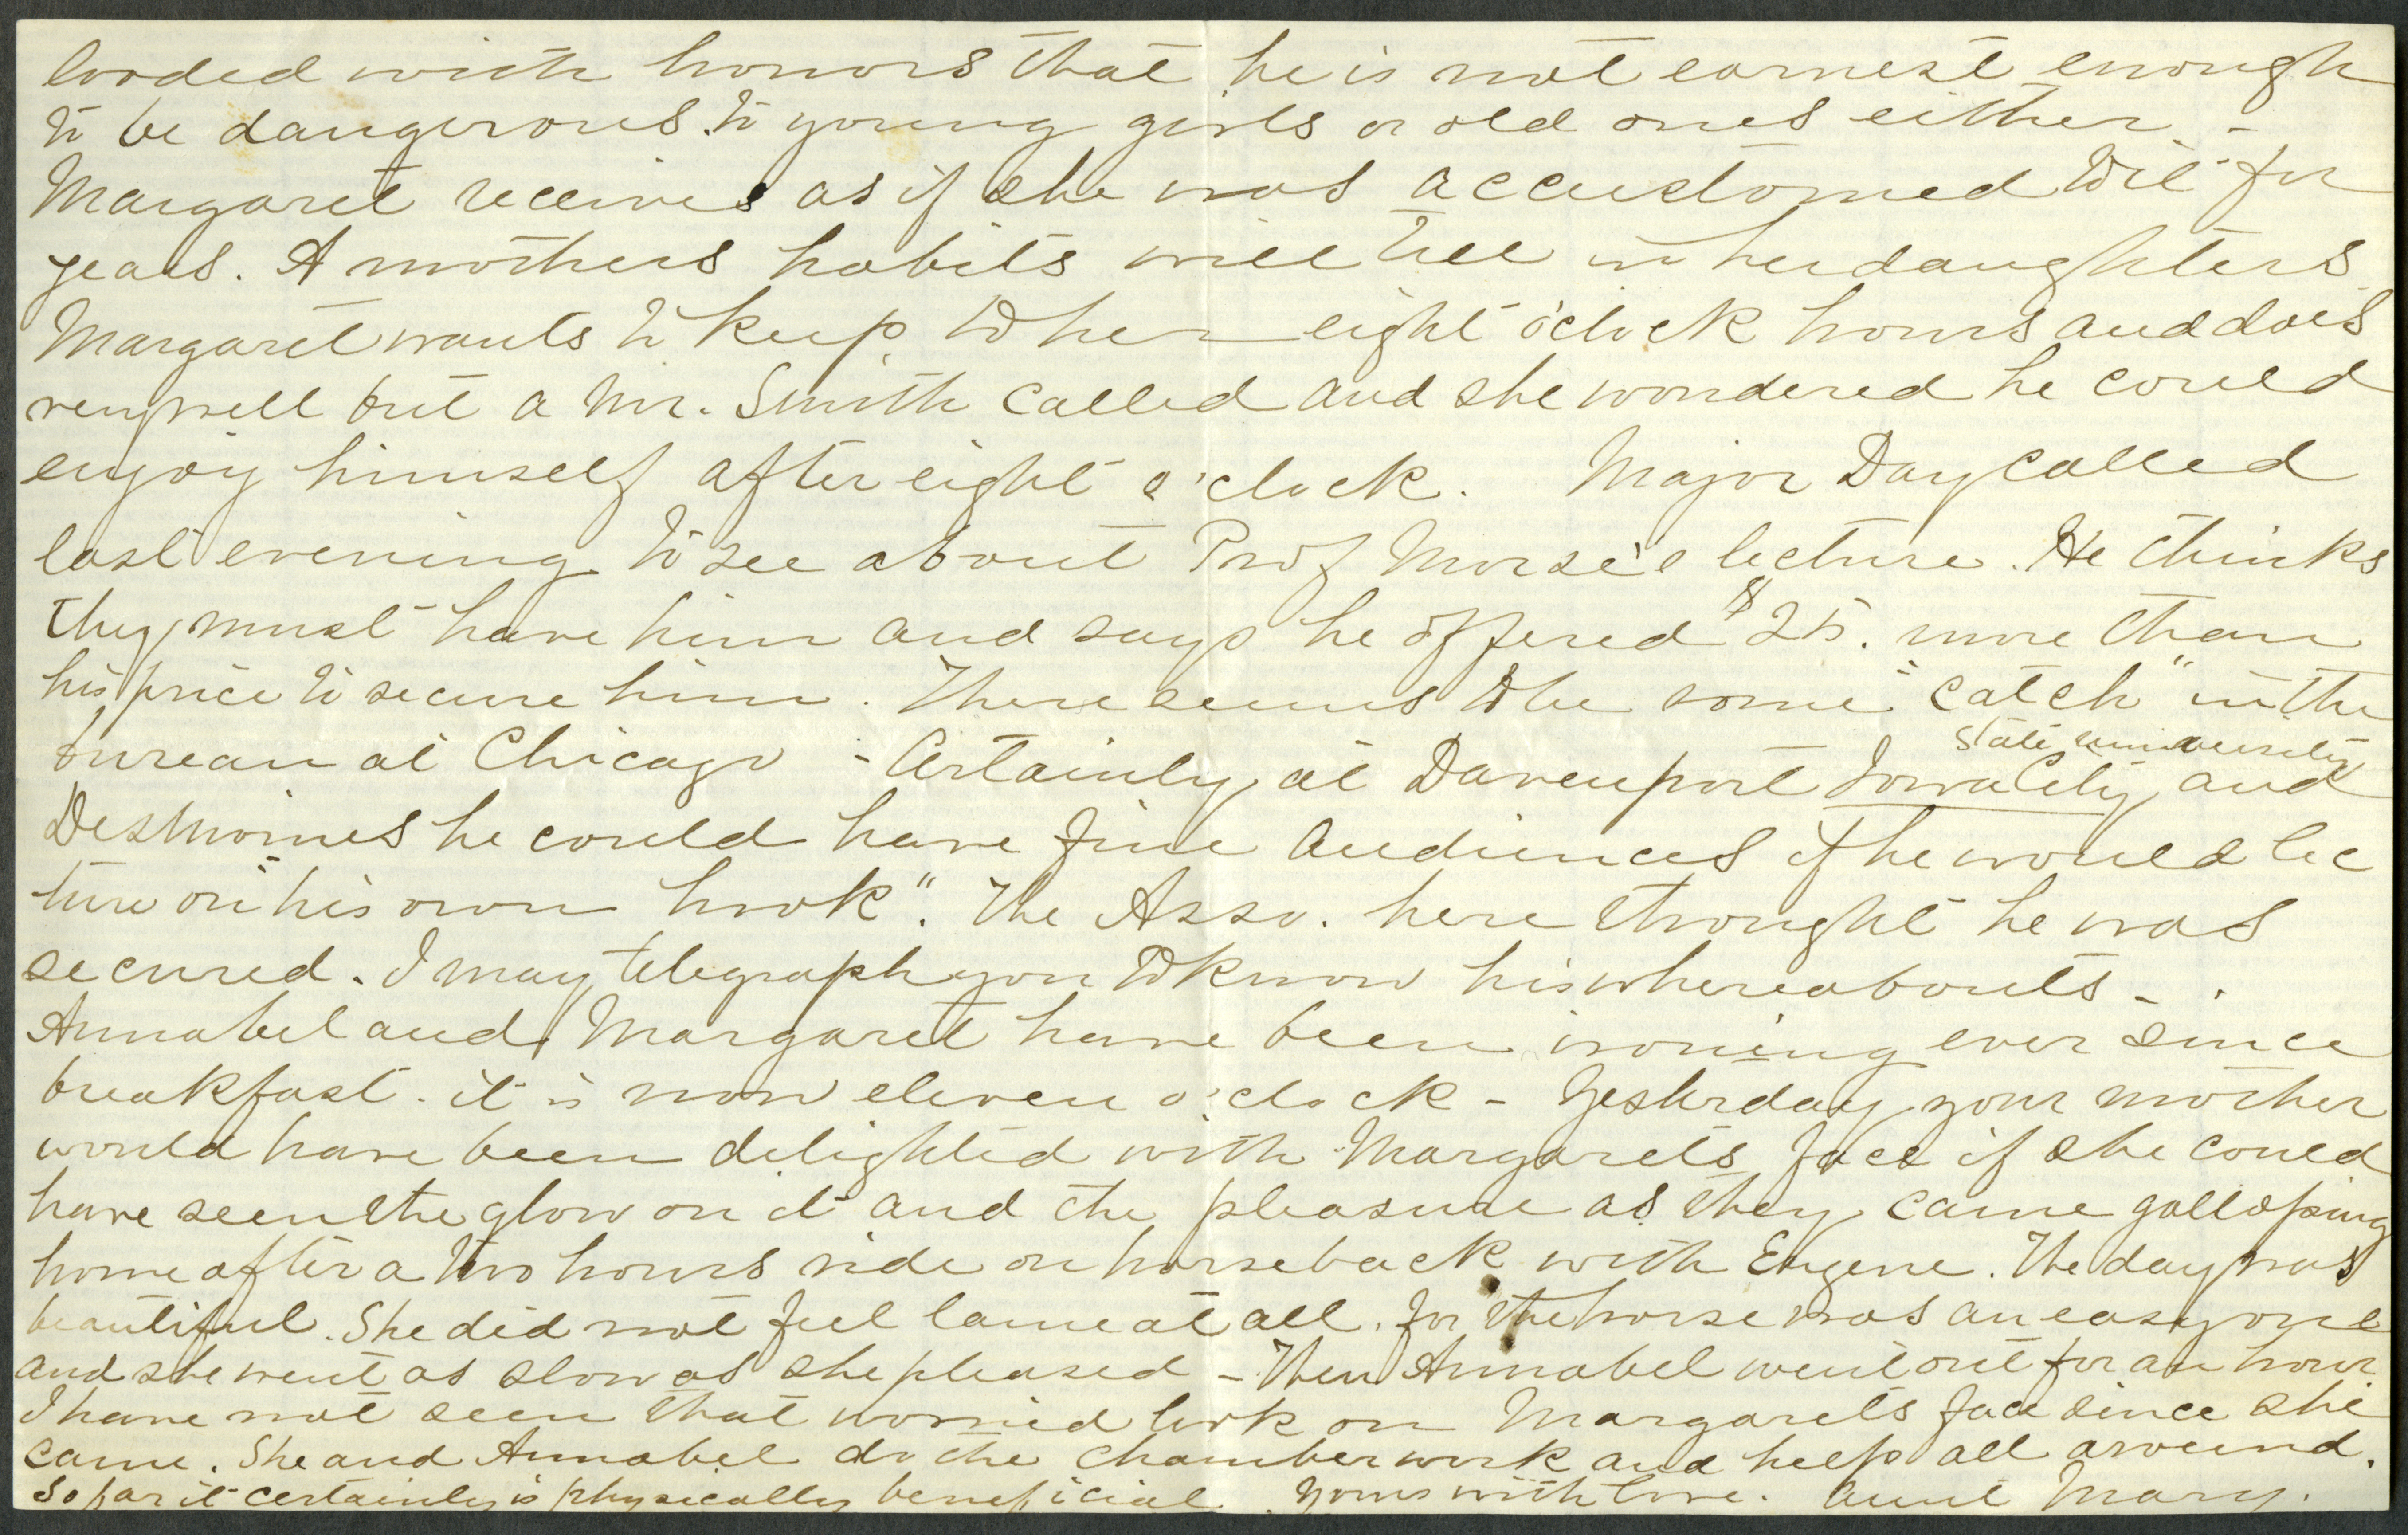 loaded with honors that he is not earnest enough
to be dangerous to young girls or old ones either. -
Margaret receives as if she was accustomed to it for
years. A mothers habits will tell in her daughters
Margaret wants to keep to her eight o'clock hours and does
very well but a Mr. Smith called and she wondered he could
enjoy himself after eight o'clock. Major Day called
last evening to see about Prof Morse's lecture. He thinks
they must have him and says he offered $25. more than
his price to secure him. There seems to be some "catch" in the
bureau at Chicago - Certainly at Davenport Iowa City state university and
Desmoines he could have fine audiences if he would lec
ture on "his own hook". The Asso. here thought he was
secured. I may telegraph you to know his whereabouts - .
Annabel and Margaret have been ironing ever since
breakfast. it is now eleven o'clock - Yesterday your mother
would have been delighted with Margarets face if she could
have seen the glow on it and the pleasure as they came galloping
home after a two hours ride on horseback with Eugene. The day was
beautiful. She did not feel lame at all. for the horse was an easy one
and she went as slow as she pleased - Then Annabel went out for an hour.
I have not seen that worried look on Margarets face since she
came. She and Annabel do the chamberwork and help all around.
So far it certainly is physically beneficial. Yours with love. Aunt Mary.